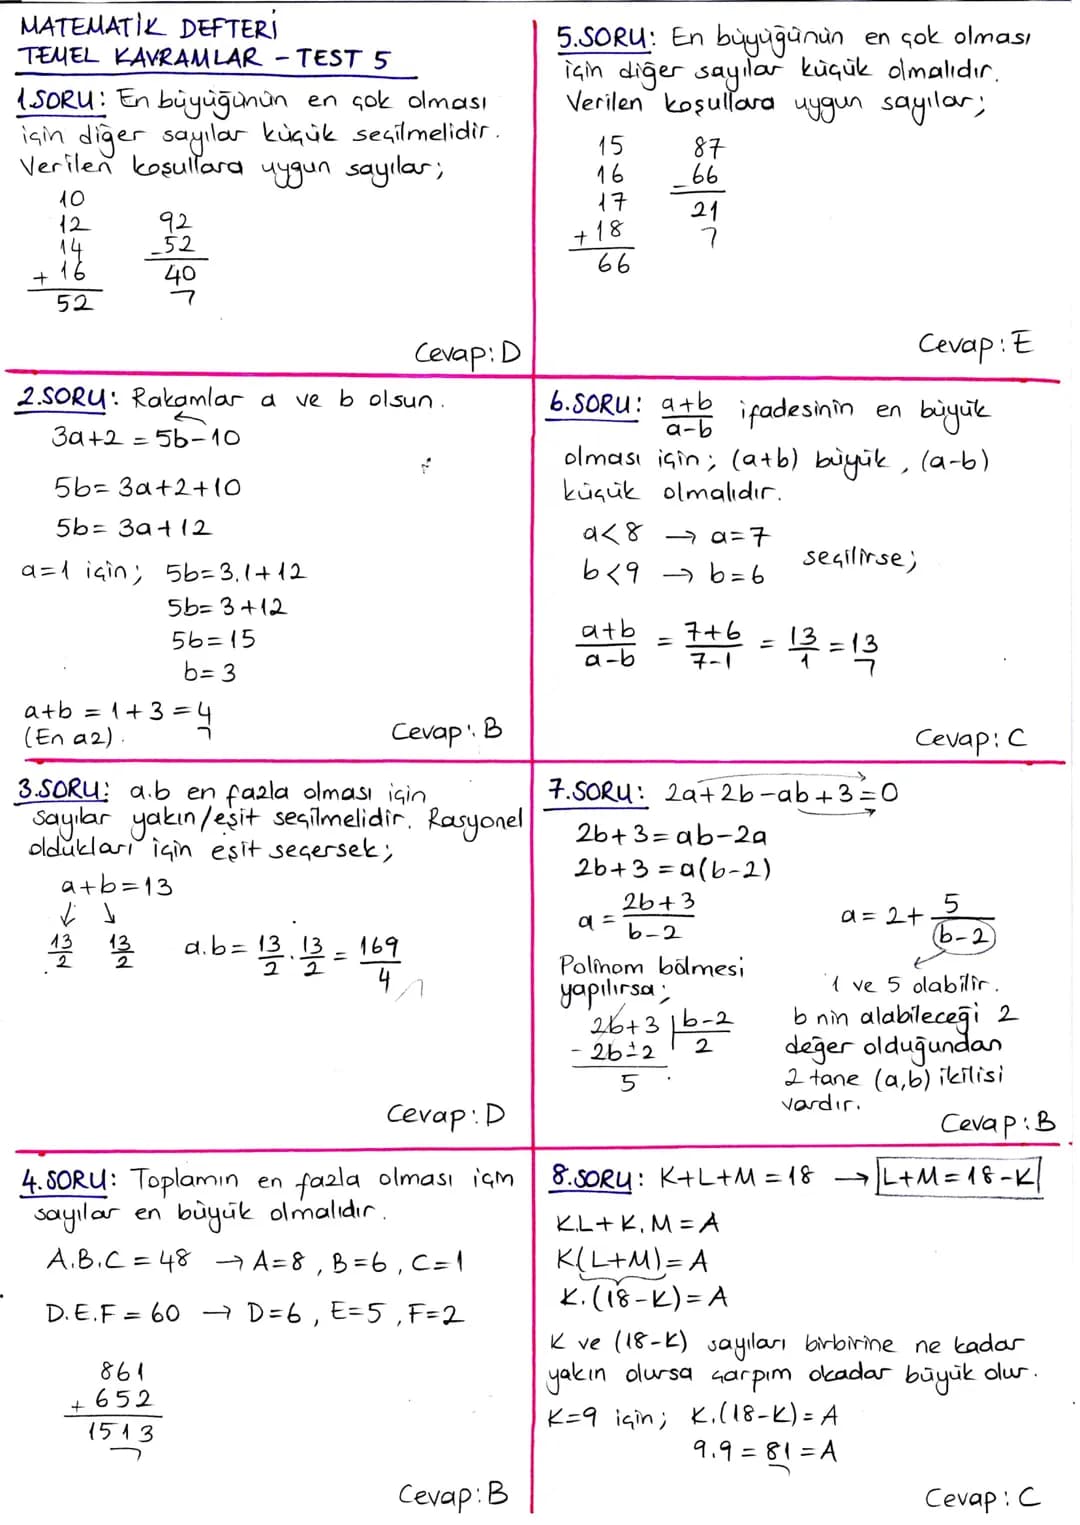 MATEMATİK DEFTERİ
TEMEL KAVRAMLAR - TEST 5
1.SORU: En büyüğünün en çok olması
için diğer sayılar küçük seçilmelidir.
Verilen koşullara uygun sayılar;
10
12
14
+ 16
52
92
-52
40
Cevap: D
2.SORU: Rakamlar a ve b olsun.
3a+2 = 5b-10
5b= 3a+2+10
5b= 3a+12
a=1 için; 5b=3.1+12
5b= 3+12
5b=15
b= 3
a+b = 1+3 = 4
(En az).
Cevap: B
3.SORU: a.b en fazla olması için
sayılar yakın/eşit seçilmelidir. Rasyonel
oldukları için eşit seçersek;
a+b=13
13/2 13/2 a.b= 13/2 . 13/2 = 169/4
Cevap: D
4.SORU: Toplamın en fazla olması için
sayılar en büyük olmalıdır.
A.B.C = 48 → A=8, B=6, C=1
D.E.F = 60 → D=6, E=5, F=2
861
+ 652
1513
Cevap: B
5.SORU: En büyüğünün en çok olması
için diğer sayılar küçük olmalıdır.
Verilen koşullara uygun sayılar;
15
16
17
+ 18
66
87
-66
21
Cevap: E
6.SORU: a+b/a-b ifadesinin en büyük
olması için; (a+b) büyük, (a-b)
küçük olmalıdır.
a<8 → a=7
b<9 → b=6
seçilirse;
a+b/a-b = 7+6/7-1 = 13/1 = 13
Cevap: C
7.SORU: 2a+2b-ab+3=0
2b+3= ab-2a
2b+3 = a(b-2)
a = 2b+3/b-2
Polinom bölmesi
yapılırsa;
2b+3 | b-2
- 2b±2 | 2
5
a= 2+ 5/(b-2)
1 ve 5 olabilir.
b nin alabileceği 2
değer olduğundan
2 tane (a,b) ikilisi
vardır.
Cevap: B
8.SORU: K+L+M = 18 → L+M = 18-K
K.L+K.M = A
K(L+M)= A
K.(18-K)= A
K ve (18-K) sayıları birbirine ne kadar
yakın olursa çarpım okadar büyük olur.
K=9 için; K.(18-K)= A
9.9 = 81 = A
Cevap: C